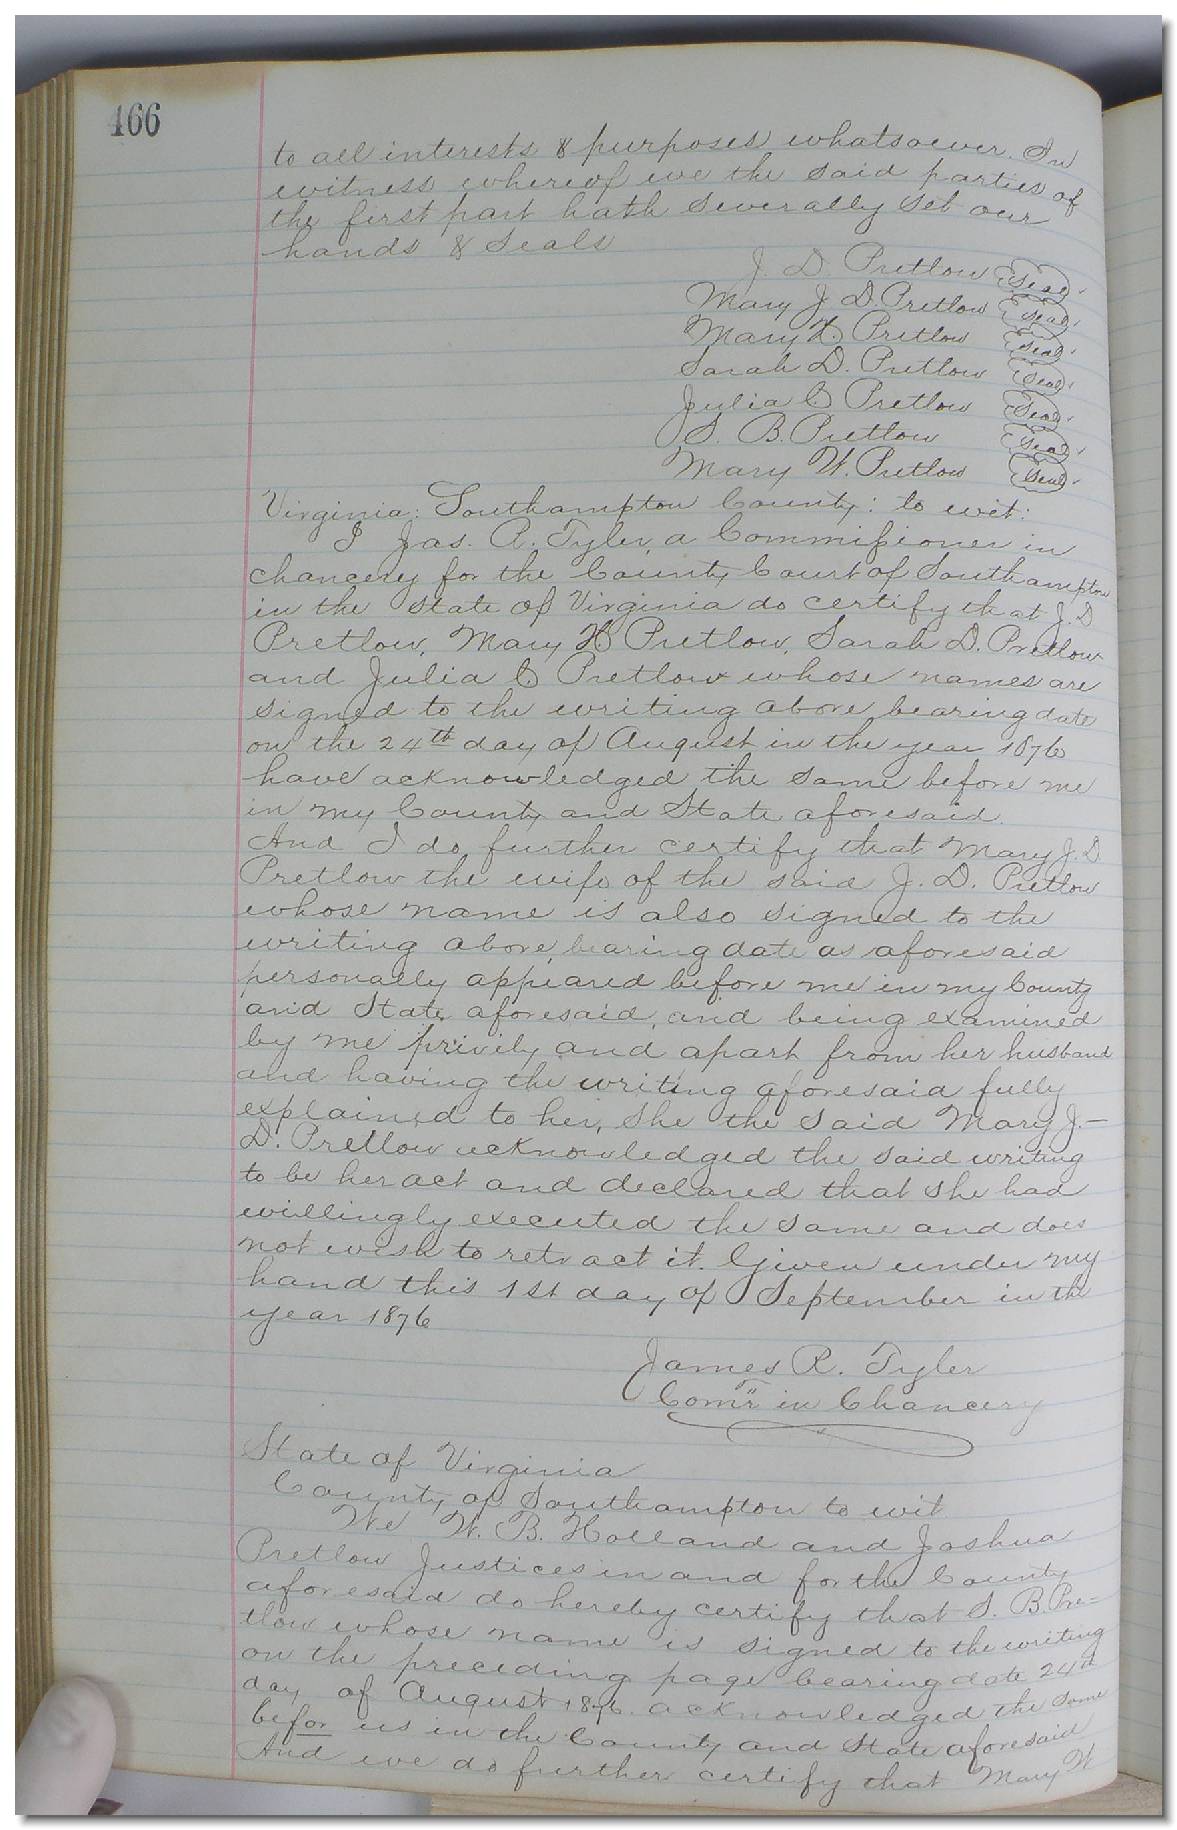 466
to all interests & purposes whatsoever. In
witness whereof we the said parties of
the first part hath severally set our
hands & seals
J. D. Pretlow Seal
Mary J. D. Pretlow Seal
Mary Pretlow Seal
Sarah D. Pretlow Seal
Julia C Pretlow Seal
S. B. Pretlow Seal
Mary W. Pretlow Seal
Virginia: Southampton County: to wit:
I Jas. R. Tyler, a Commissioner in
chancery for the County Court of Southampton
in the State of Virginia do certify that J. D
Pretlow, Mary Pretlow, Sarah D. Pretlow
and Julia C Pretlow whose names are
signed to the writing above bearing date
on the 24th day of August in the year 1876
have acknowledged the same before me
in my County and State aforesaid.
And I do further certify that Mary J. D
Pretlow the wife of the said J. D. Pretlow
whose name is also signed to the
writing above, bearing date as aforesaid
personally appeared before me in my County
and State aforesaid, and being examined
by me privily and apart from her husband
and having the writing aforesaid fully
explained to her, she the said Mary J.-
D. Pretlow acknowledged the said writing
to be her act and declared that she had
willingly executed the same and does
not wish to retract it. Given under my
hand this 1st day of September in the
year 1876
James R. Tyler
Comr in Chancery
State of Virginia
County of Southampton to wit
We W. B. Holland and Joshua
Pretlow Justices in and for the County
aforesaid do hereby certify that S. B. Pre=
tlow whose name is signed to the writing
on the preceding page bearing date 24th
day of August 1876. acknowledged the same
befor us in the County and State aforesaid
And we do further certify that Mary W